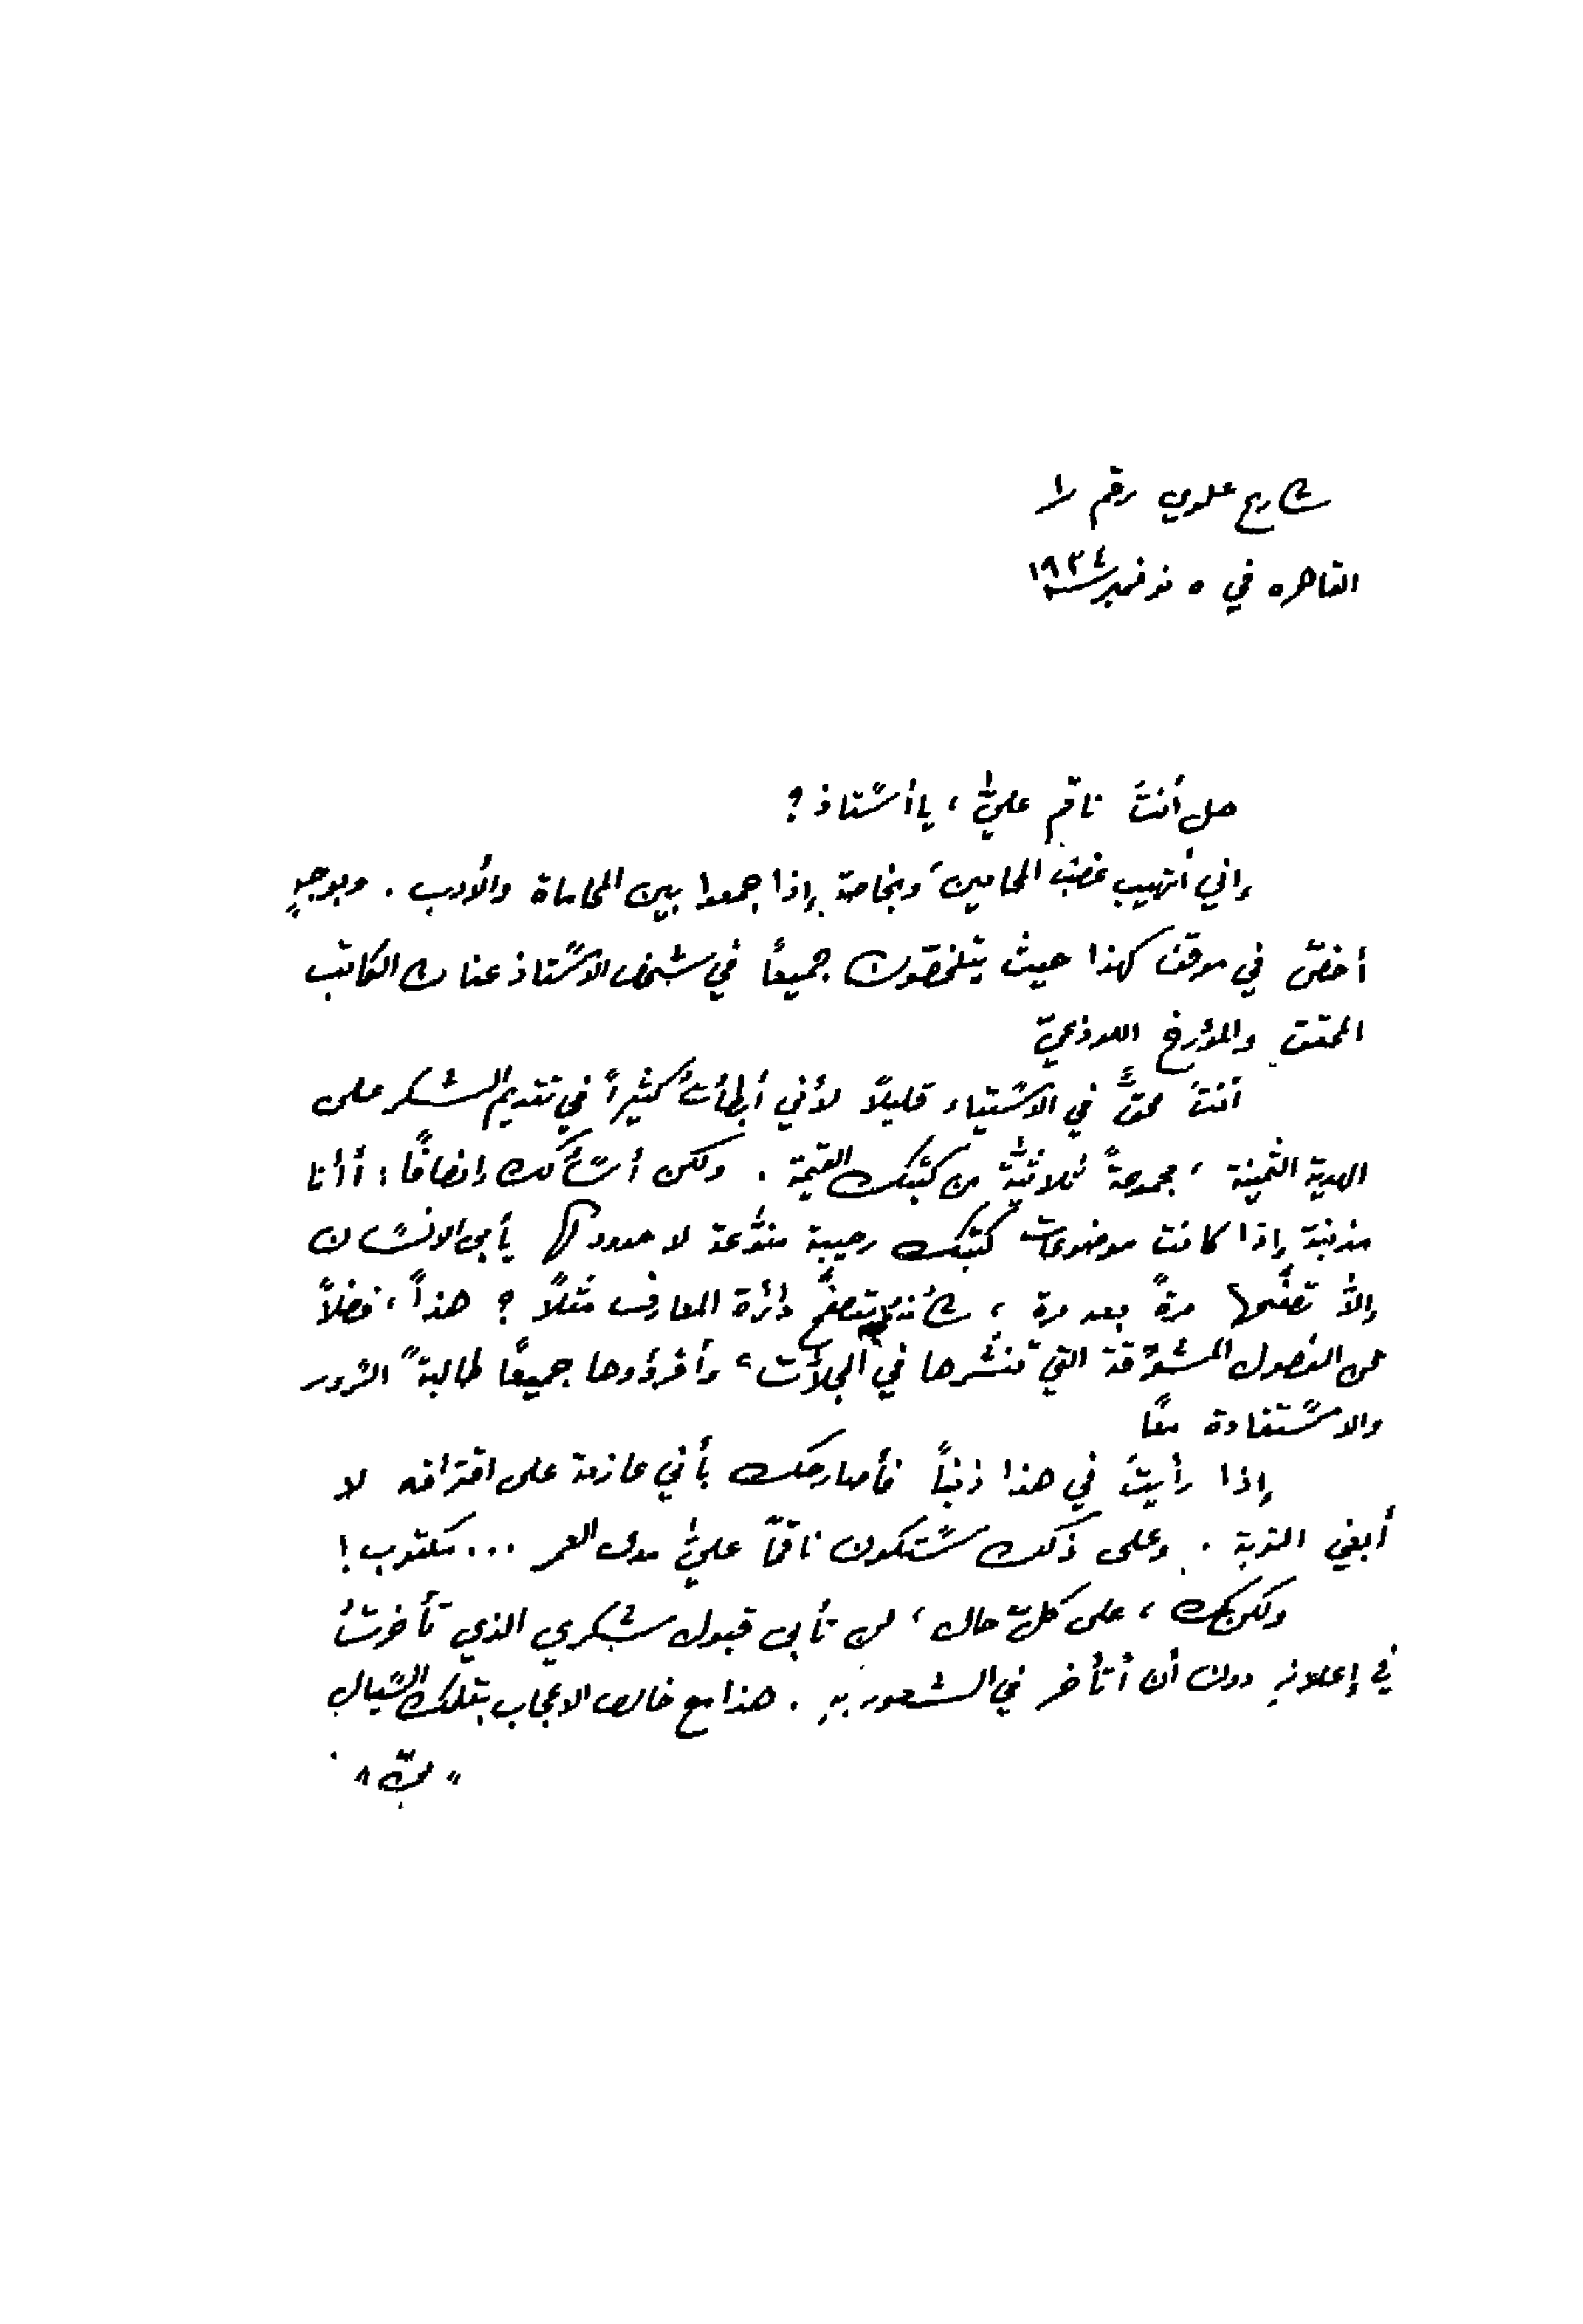 شارع علوي رقم ١
القاهره في ٥ نوفمبر سنة ١٩٣٤
هل أنتَ ناقم عليَّ، يا أستاذ؟
إني أتهيب غضب المحامين، وبخاصة إذا جمعوا بين المحاماة والأدب. وبوجهٍ
أخصّ في موقف كهذا حيث يتلخصون جميعاً في شخص الأستاذ عنان الكاتب
المحقق والمؤرخ اللوذعيّ
أنتَ محقٌّ في الاستياء قليلاً لأني أبطأتُ كثيراً في تقديم الشكر على
الهدية الثمينة، مجموعةً ثلاثيّة من كتبك القيّمة. ولكن أسألك إنصافًا: أأنا
مذنبة إذا كانت موضوعات كتبك رحيبة متنوّعة لا حدود لها يأبى الانسان
إلّا تصفّحها مرةً بعد مرة، شأنه يتصفّح دائرة المعارف مثلاً؟ هذا، فضلاً
عن الفصول المشوّقة التي تنشرها في المجلّات، وأقرؤها جميعًا طالبةً السرور
والاستفادة معًا
إذا رأيتَ في هذا ذنباً فأصارحك بأني عازمة على اقترافه لا
أبغي التوبة. وعلى ذلك ستكون ناقمًا عليَّ مدى العمر ... مكتوب!
ولكنك، على كلّ حال، لن تأبى قبول شكري الذي تأخرتُ
في إعلانهِ دون أن أتأخر في الشعور بهِ. هذا مع خالص الاعجاب بتلك السّيال
"ميّ"